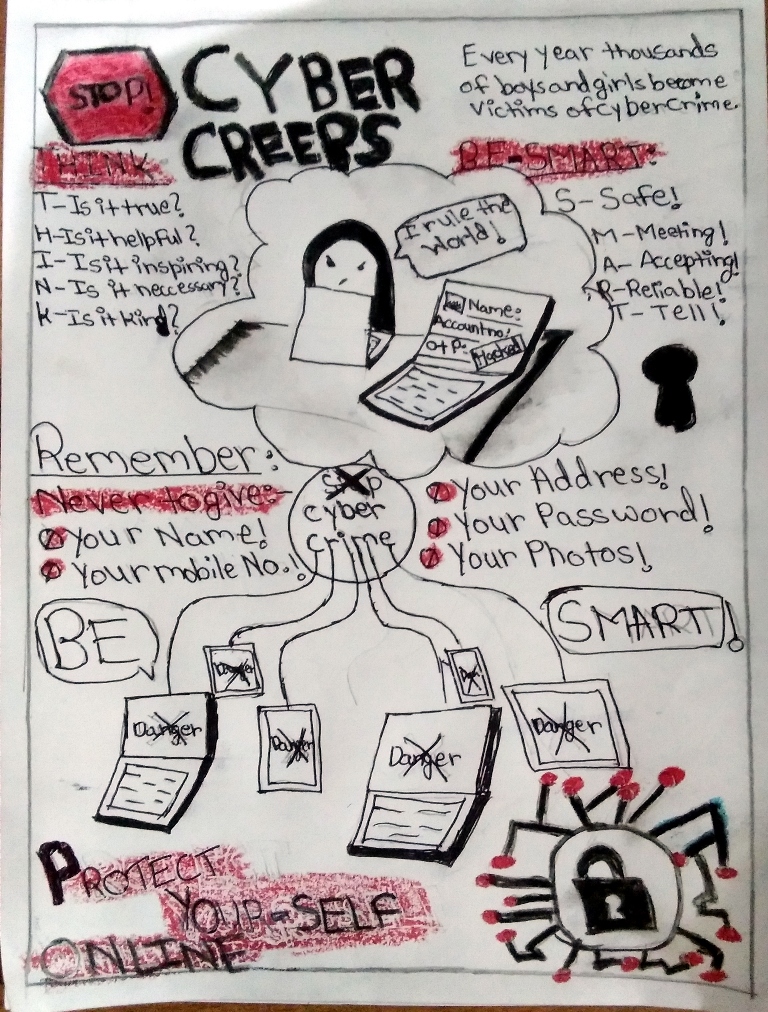 STOP!
CYBER
CREEPS
Every year thousands
of boys and girls become
Victims of cyber Crime.
THINK
T-Is it true?
H-Is it helpful?
I-Is it inspiring?
N-Is it neccessary?
K-Is it kind?
BE-SMART:
S-Safe!
M-Meeting!
A-Accepting!
R-Reliable!
T-Tell!
I rule the
World!
Name:
Account no:
OTP:
Hacked
Remember:
Never to give:-
Your Name!
Your mobile No.!
Stop
cyber
crime
Your Address!
Your Password!
Your Photos!
BE
SMART!
Danger
Danger
Danger
Danger
Danger
PROTECT
YOUR-SELF
ONLINE